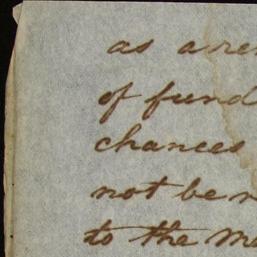 as a
of fund
chances
not be
to the